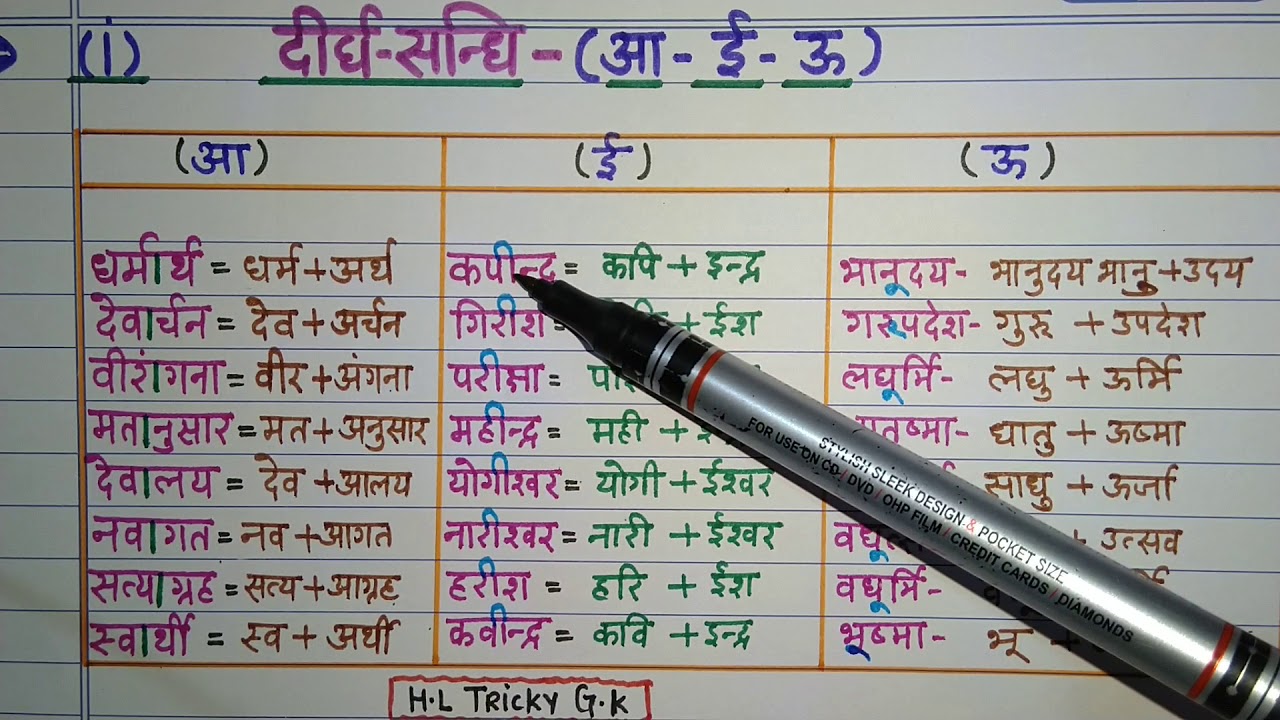 (i) दीर्घ-सन्धि-(आ-ई-ऊ)
(आ) (ई) (ऊ)
धर्मार्थ = धर्म+अर्थ कपीन्द्र= कपि + इन्द्र भानूदय- भानुदय भानु+उदय
देवार्चन = देव+अर्चन गिरीश= + ईश गरूपदेश- गुरु + उपदेश
वीरांगना= वीर+अंगना परीक्षा= लघूर्मि- लघु + ऊर्मि
मतानुसार=मत+अनुसार महीन्द्र= मही + धातु + ऊष्मा
देवालय = देव+आलय योगीश्वर= योगी + ईश्वर साधु + ऊर्जा
नवागत=नव+आगत नारीश्वर= नारी + ईश्वर उत्सव
सत्याग्रह=सत्य+आग्रह हरीश = हरि + ईश वधूर्मि-
स्वार्थी = स्व+अर्थी कवीन्द्र= कवि + इन्द्र भूष्मा- भू +
H.L TRICKY G.K
STYLISH SLEEK DESIGN & POCKET SIZE
FOR USE ON CD / DVD / OHP FILM / CREDIT CARDS / DIAMONDS